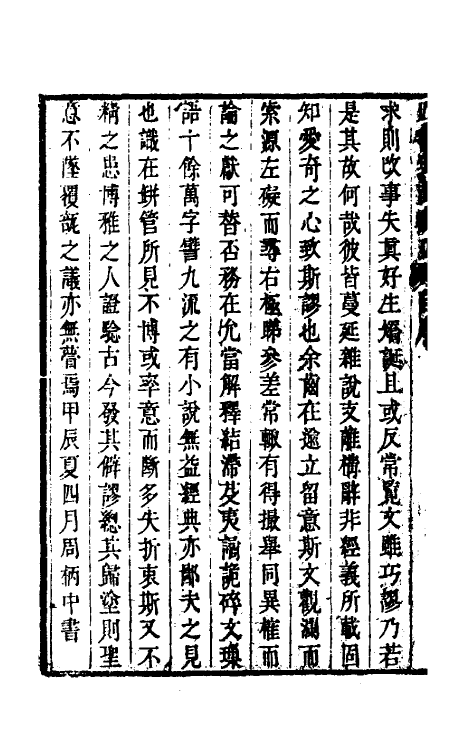 求則改事失真好生矯誕且或反常覧文雖巧謬乃若
是其故何哉彼皆蔓延雜說支離構辭非經義所載固
知愛奇之心致斯謬也余齒在逾立留意斯文觀瀾而
索源左礙而尋右極睇參差常轍有得撮舉同異榷而
論之獻可替否務在允當解釋結滯芟夷譎詭碎文璅
語十餘萬字譬九流之有小說無益經典亦鄙夫之見
也識在缾管所見不博或率意而斷多失折衷斯又不
精之患博雅之人證驗古今發其僻謬總其歸塗則聖
意不墜覆瓿之議亦無瞢焉甲辰夏四月周柄中書